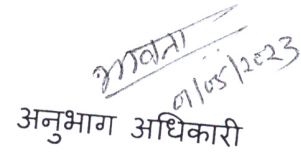 भावना
01/05/2023
अनुभाग अधिकारी